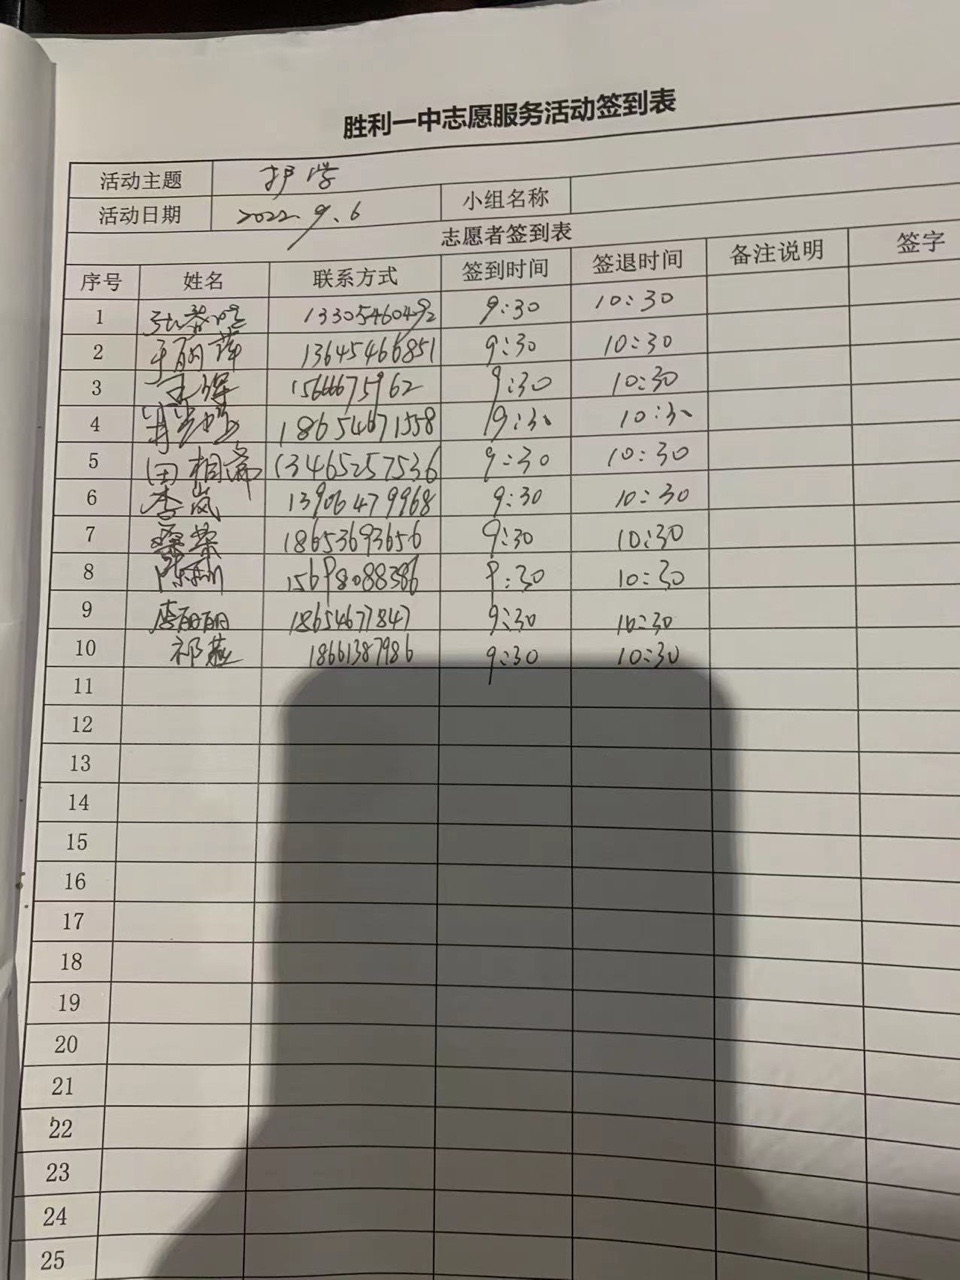 胜利一中志愿服务活动签到表
活动主题 护学
活动日期 2022.9.6 小组名称
志愿者签到表
序号 姓名 联系方式 签到时间 签退时间 备注说明 签字
1 13305460492 9:30 10:30
2 于丽萍 13645466851 9:30 10:30
3 王辉 9:30 10:30
4 18654671558 9:30 10:30
5 田相帝 13465257536 9:30 10:30
6 李岚 13906479968 9:30 10:30
7 桑荣 18653693656 9:30 10:30
8 15698088386 9:30 10:30
9 李丽丽 18654677847 9:30 10:30
10 祁燕 18661387986 9:30 10:30
11
12
13
14
15
16
17
18
19
20
21
22
23
24
25